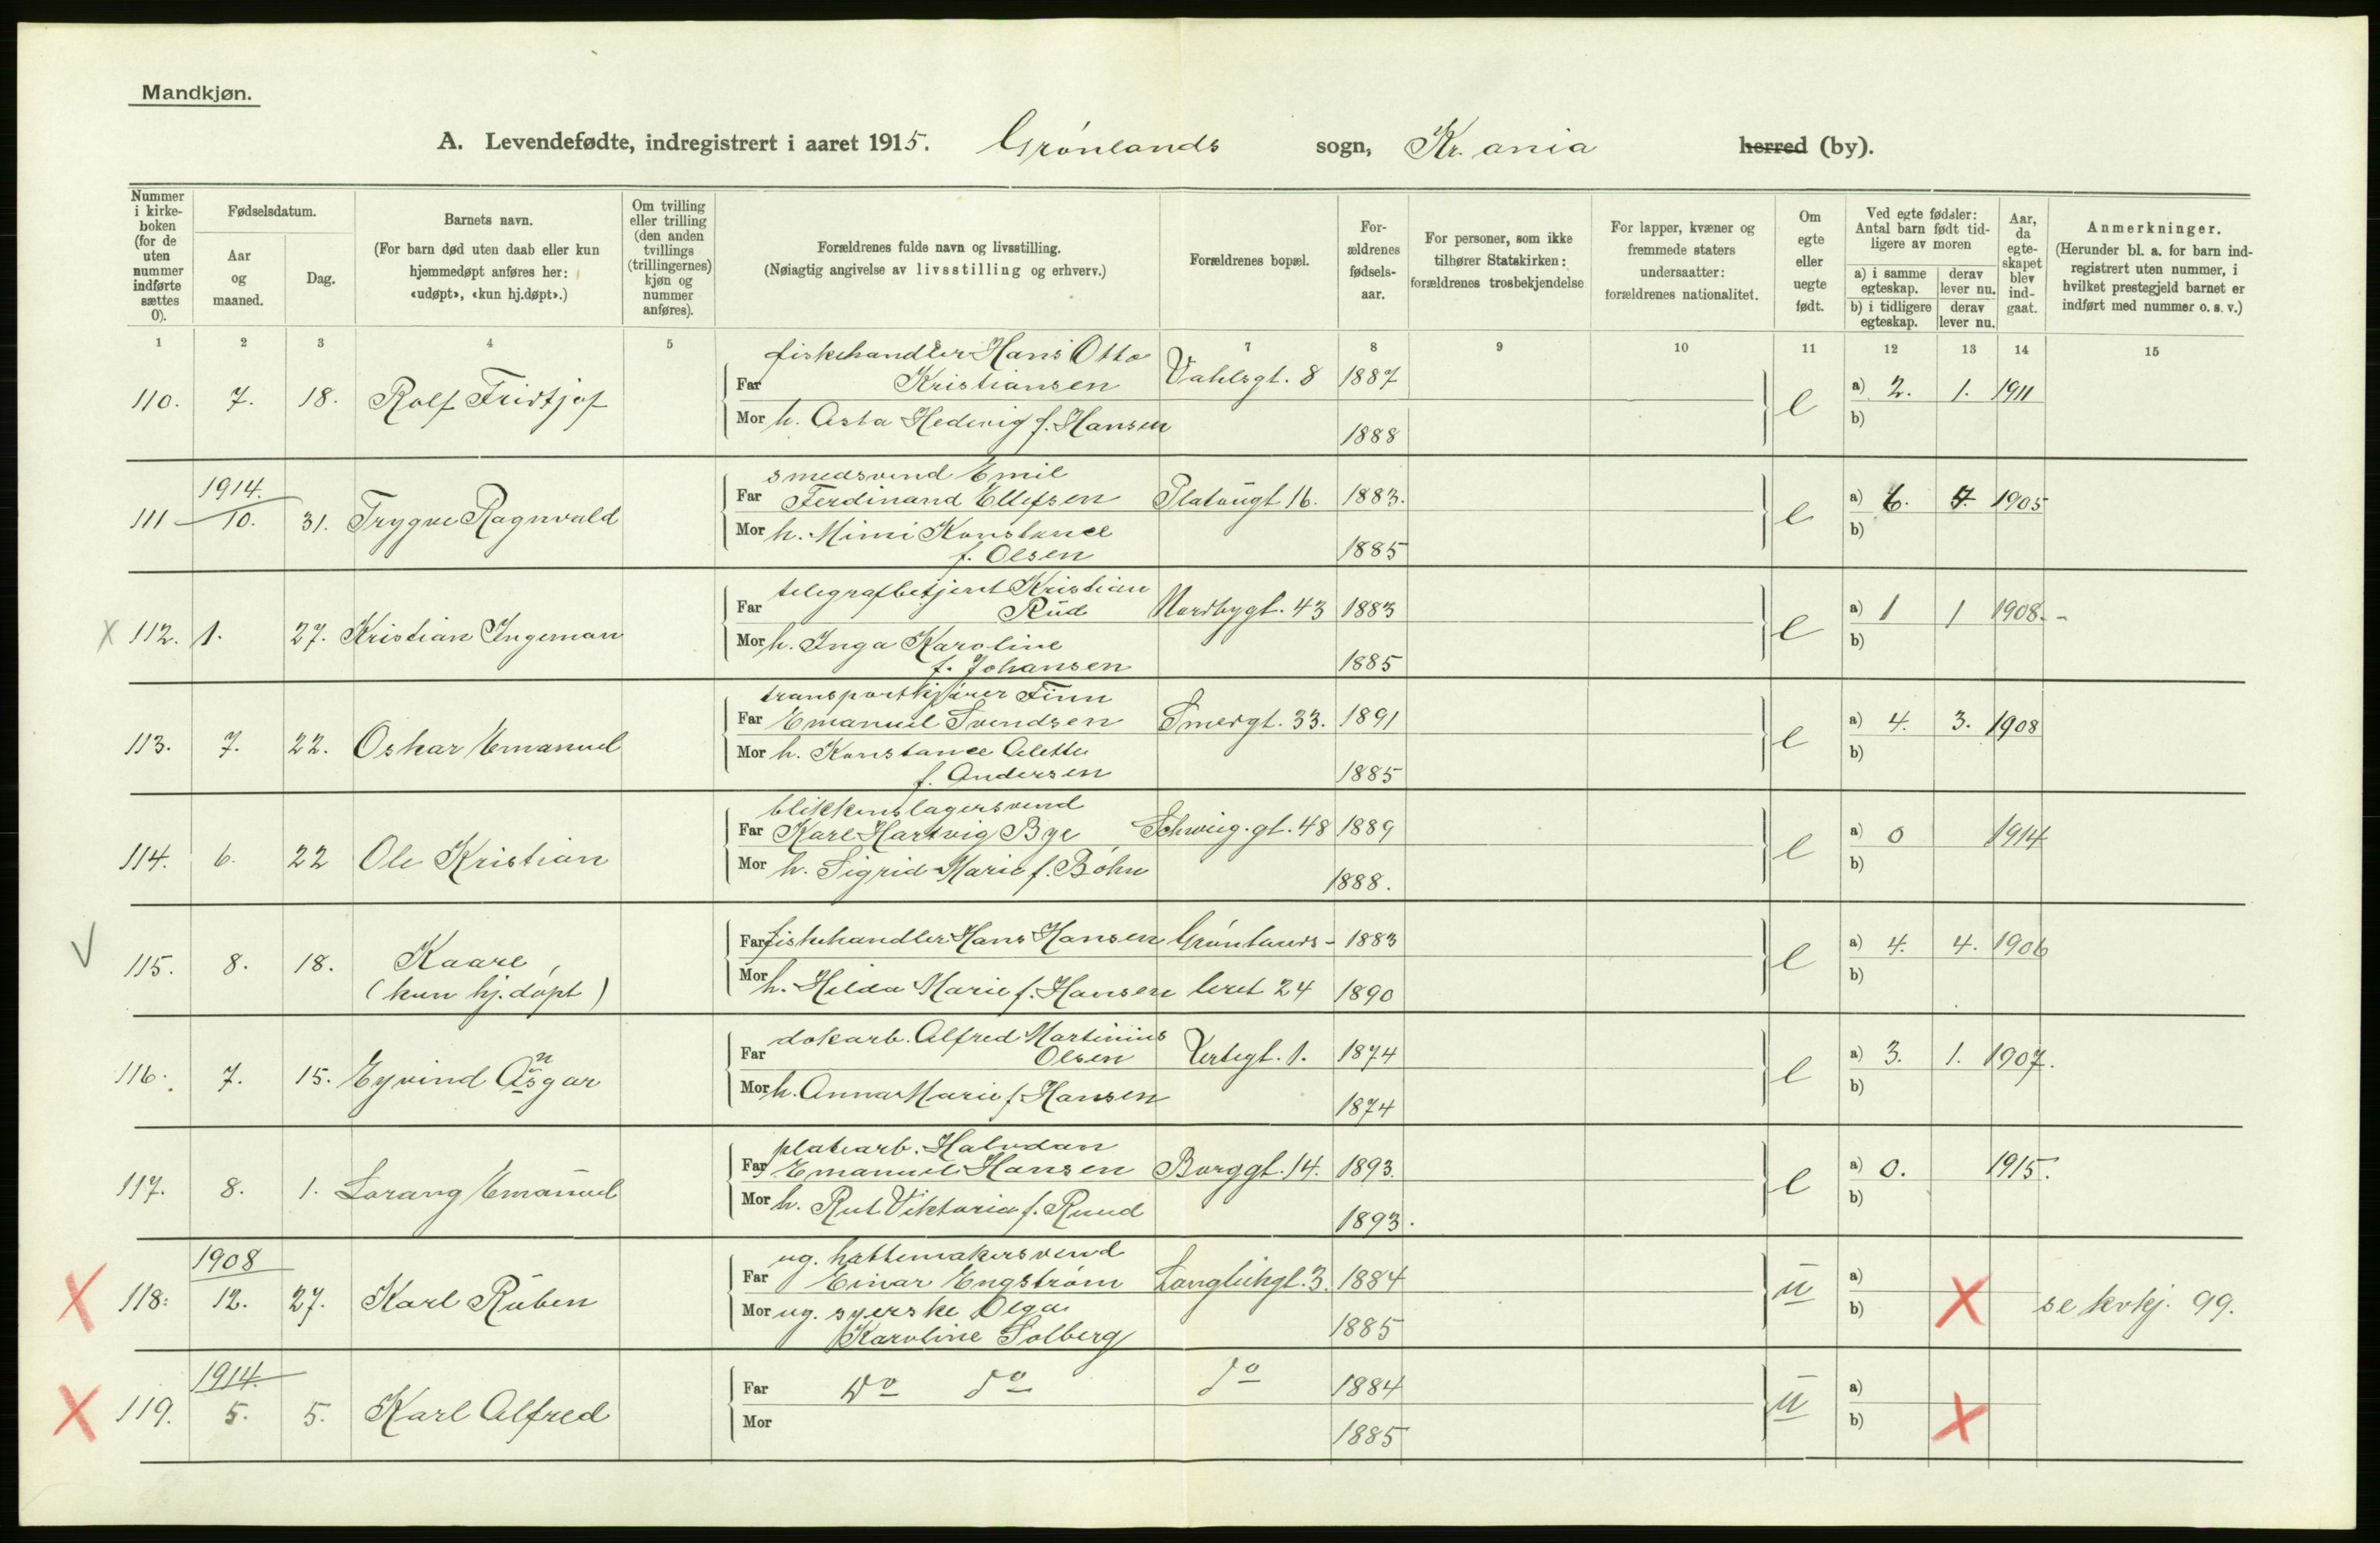 Mandkjøn.
A. Levendefødte, indregistrert i aaret 1915. Grønlands sogn, Kr.ania herred (by).
Nummer i kirkeboken (for de uten nummer indførte sættes 0).
Fødselsdatum.
Aar og maaned.
Dag.
Barnets navn.
(For barn død uten daab eller kun hjemmedøpt anføres her: «udøpt», «kun hj.døpt».)
Om tvilling eller trilling (den anden tvillings (trillingernes) kjøn og nummer anføres).
Forældrenes fulde navn og livsstilling.
(Nøiagtig angivelse av livsstilling og erhverv.)
Forældrenes bopæl.
Forældrenes fødselsaar.
For personer, som ikke tilhører Statskirken: forældrenes trosbekjendelse
For lapper, kvæner og fremmede staters undersaatter: forældrenes nationalitet.
Om egte eller uegte født.
Ved egte fødsler: Antal barn født tidligere av moren
a) i samme egteskap. derav lever nu.
b) i tidligere egteskap. derav lever nu.
Aar, da egteskapet blev indgaat.
Anmerkninger.
(Herunder bl. a. for barn indregistrert uten nummer, i hvilket prestegjeld barnet er indført med nummer o. s. v.)
1 2 3 4 5 7 8 9 10 11 12 13 14 15
fiskehandler Hans Otto
110. 7. 18. Rolf Fridtjof Far Kristiansen Vahlsgt. 8 1887 e a) 2. 1. 1911
Mor h. Asta Hedevig f. Hansen 1888 b)
1914. smedsvend Emil
111 10. 31. Trygve Ragnvald Far Ferdinand Ellefsen Platougt 16. 1883. e a) 6. 4. 1905
Mor h. Mimi Konstance b)
f. Olsen 1885
telegrafbetjent Kristian
X 112. 1. 27. Kristian Ingeman Far Rud Nordbygt. 43 1883 e a) 1 1 1908.
Mor h. Inga Karoline b)
f. Johansen 1885
transportkjører Finn
113. 7. 22. Oskar Emanuel Far Emanuel Svendsen Smedgt. 33. 1891 e a) 4. 3. 1908
Mor h. Konstance Alette b)
f. Andersen 1885
blikkenslagersvend
114. 6. 22 Ole Kristian Far Karl Hartvig Bye Schweig.gt. 48 1889 e a) 0 1914
Mor h. Sigrid Marie f. Bøhn 1888. b)
V 115. 8. 18. Kaare, Far fiskehandler Hans Hansen Grønlands- 1883 e a) 4. 4. 1906
(kun hj.døpt) Mor h. Hilda Marie f. Hansen leret 24 1890 b)
dokarb. Alfred Martinius
116. 7. 15. Eyvind Ansgar Far Olsen Vertsgt. 1. 1874 e a) 3. 1. 1907.
Mor h. Anna Marie f. Hansen 1874 b)
platearb. Halvdan
117. 8. 1. Lorang Emanuel Far Emanuel Hansen Borggt. 14. 1893. e a) 0. 1915.
Mor h. Rut Viktoria f. Ruud 1893. b)
1908 ug. hattemakersvend
X 118. 12. 27. Karl Ruben Far Einar Engstrøm Langleikgt. 3. 1884 u a)
Mor ug. syerske Olga b) X se kvkj. 99.
Karoline Solberg 1885
1914.
X 119. 5. 5. Karl Alfred Far Do do do 1884 u a)
Mor 1885 b) X